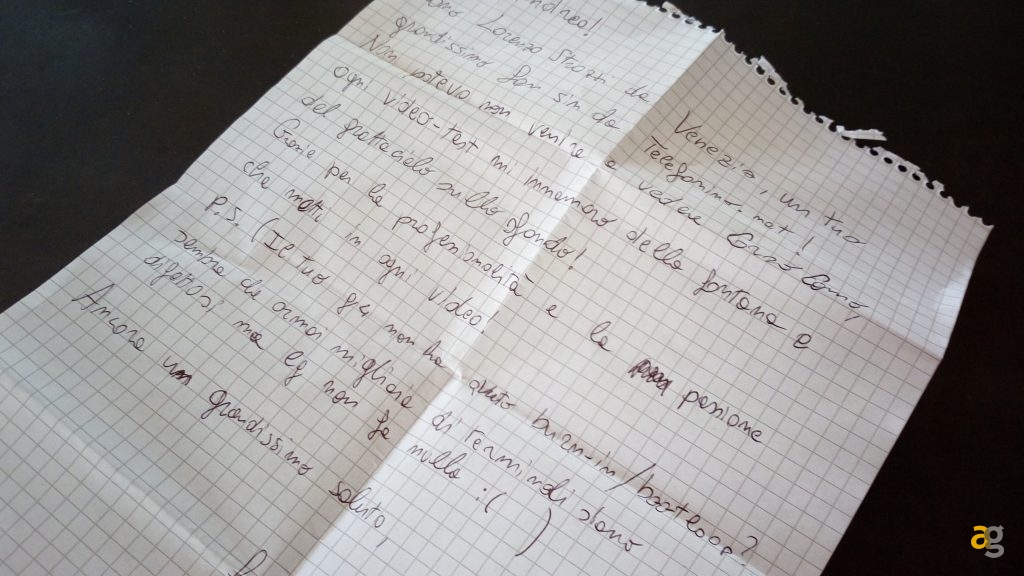 ndrea!
sono Lorenzo da Venezia, un tuo
grandissimo fan sin da Telefonino.net!
Non potevo non venire a vedere Corso Como,
ogni video-test mi innamoro della fontana e
del grattacielo sullo sfondo!
Grazie per la professionalità e la passione
che metti in ogni video!
P.S. (Il tuo g4 non ha avuto burn-in/bootloop?
sembra che ormai migliaia di terminali siano
difettosi ma lg non fa nulla :( )
Ancora un grandissimo saluto,
ag